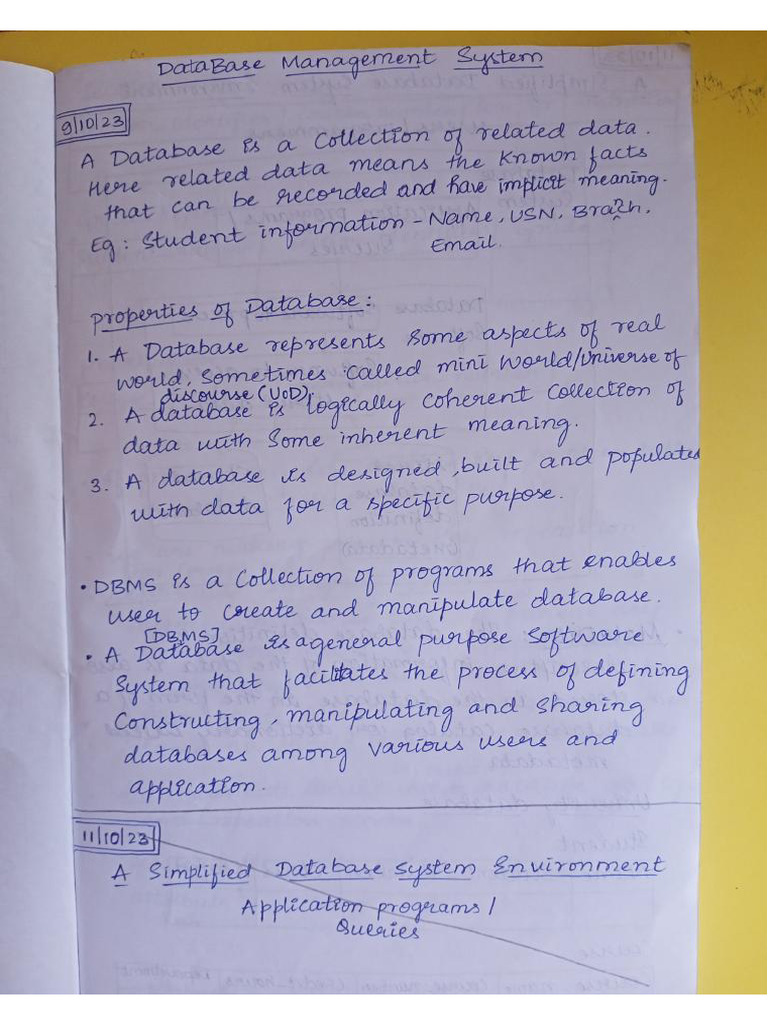 DataBase Management System
9/10/23
A Database is a Collection of related data.
Here related data means the Known facts
that can be recorded and have implicit meaning.
Eg: Student information - Name, USN, Branch,
Email.
Properties of Database:
1. A Database represents Some aspects of real
world, Sometimes Called mini World/Universe of
discourse (UOD).
2. A database is logically Coherent Collection of
data with Some inherent meaning.
3. A database is designed, built and populated
with data for a specific purpose.
• DBMS is a Collection of programs that enables
user to Create and manipulate database.
[DBMS]
• A Database is a general purpose Software
System that facilitates the process of defining
Constructing, manipulating and Sharing
databases among various users and
application.
11/10/23
A Simplified Database System Environment
Application programs /
Queries